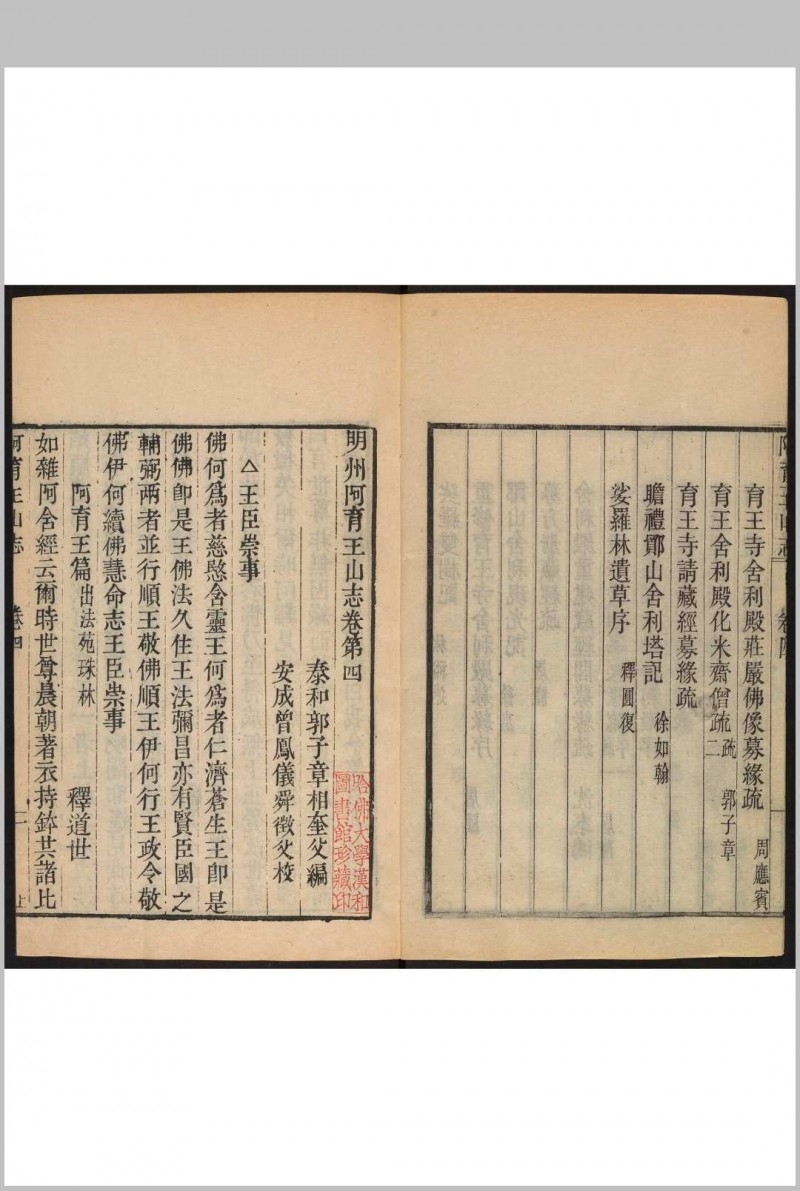 育王寺舍利殿莊嚴佛像募緣疏 周應賓
育王舍利殿化米齋僧疏二疏 郭子章
育王寺請藏經募緣疏
瞻禮鄮山舍利塔記 徐如翰
娑羅林遺草序 釋圓復
明州阿育王山志卷第四
泰和郭子章相奎父編
安成曾鳳儀舜徵父校
△王臣崇事
佛何爲者慈愍含靈王何爲者仁濟蒼生王即是
佛佛即是王佛法久住王法彌昌亦有賢臣國之
輔弼兩者並行順王敬佛順王伊何行王政令敬
佛伊何續佛慧命志王臣崇事
阿育王篇出法苑珠林 釋道世
如雜阿含經云爾時世尊晨朝著衣持鉢共諸比
阿育王山志 卷四 一 上
哈佛大學漢和
圖書館珍藏印